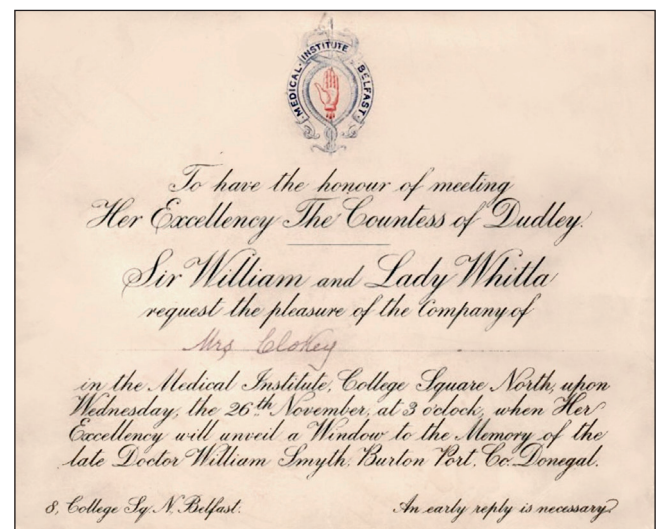 MEDICAL INSTITUTE BELFAST
To have the honour of meeting
Her Excellency The Countess of Dudley.
Sir William and Lady Whitla
request the pleasure of the Company of
Mrs Clokey
in the Medical Institute, College Square North, upon
Wednesday, the 26th November, at 3 o'clock, when Her
Excellency will unveil a Window to the Memory of the
late Doctor William Smyth, Burton Port, Co. Donegal.
8, College Sq. N. Belfast.
An early reply is necessary.